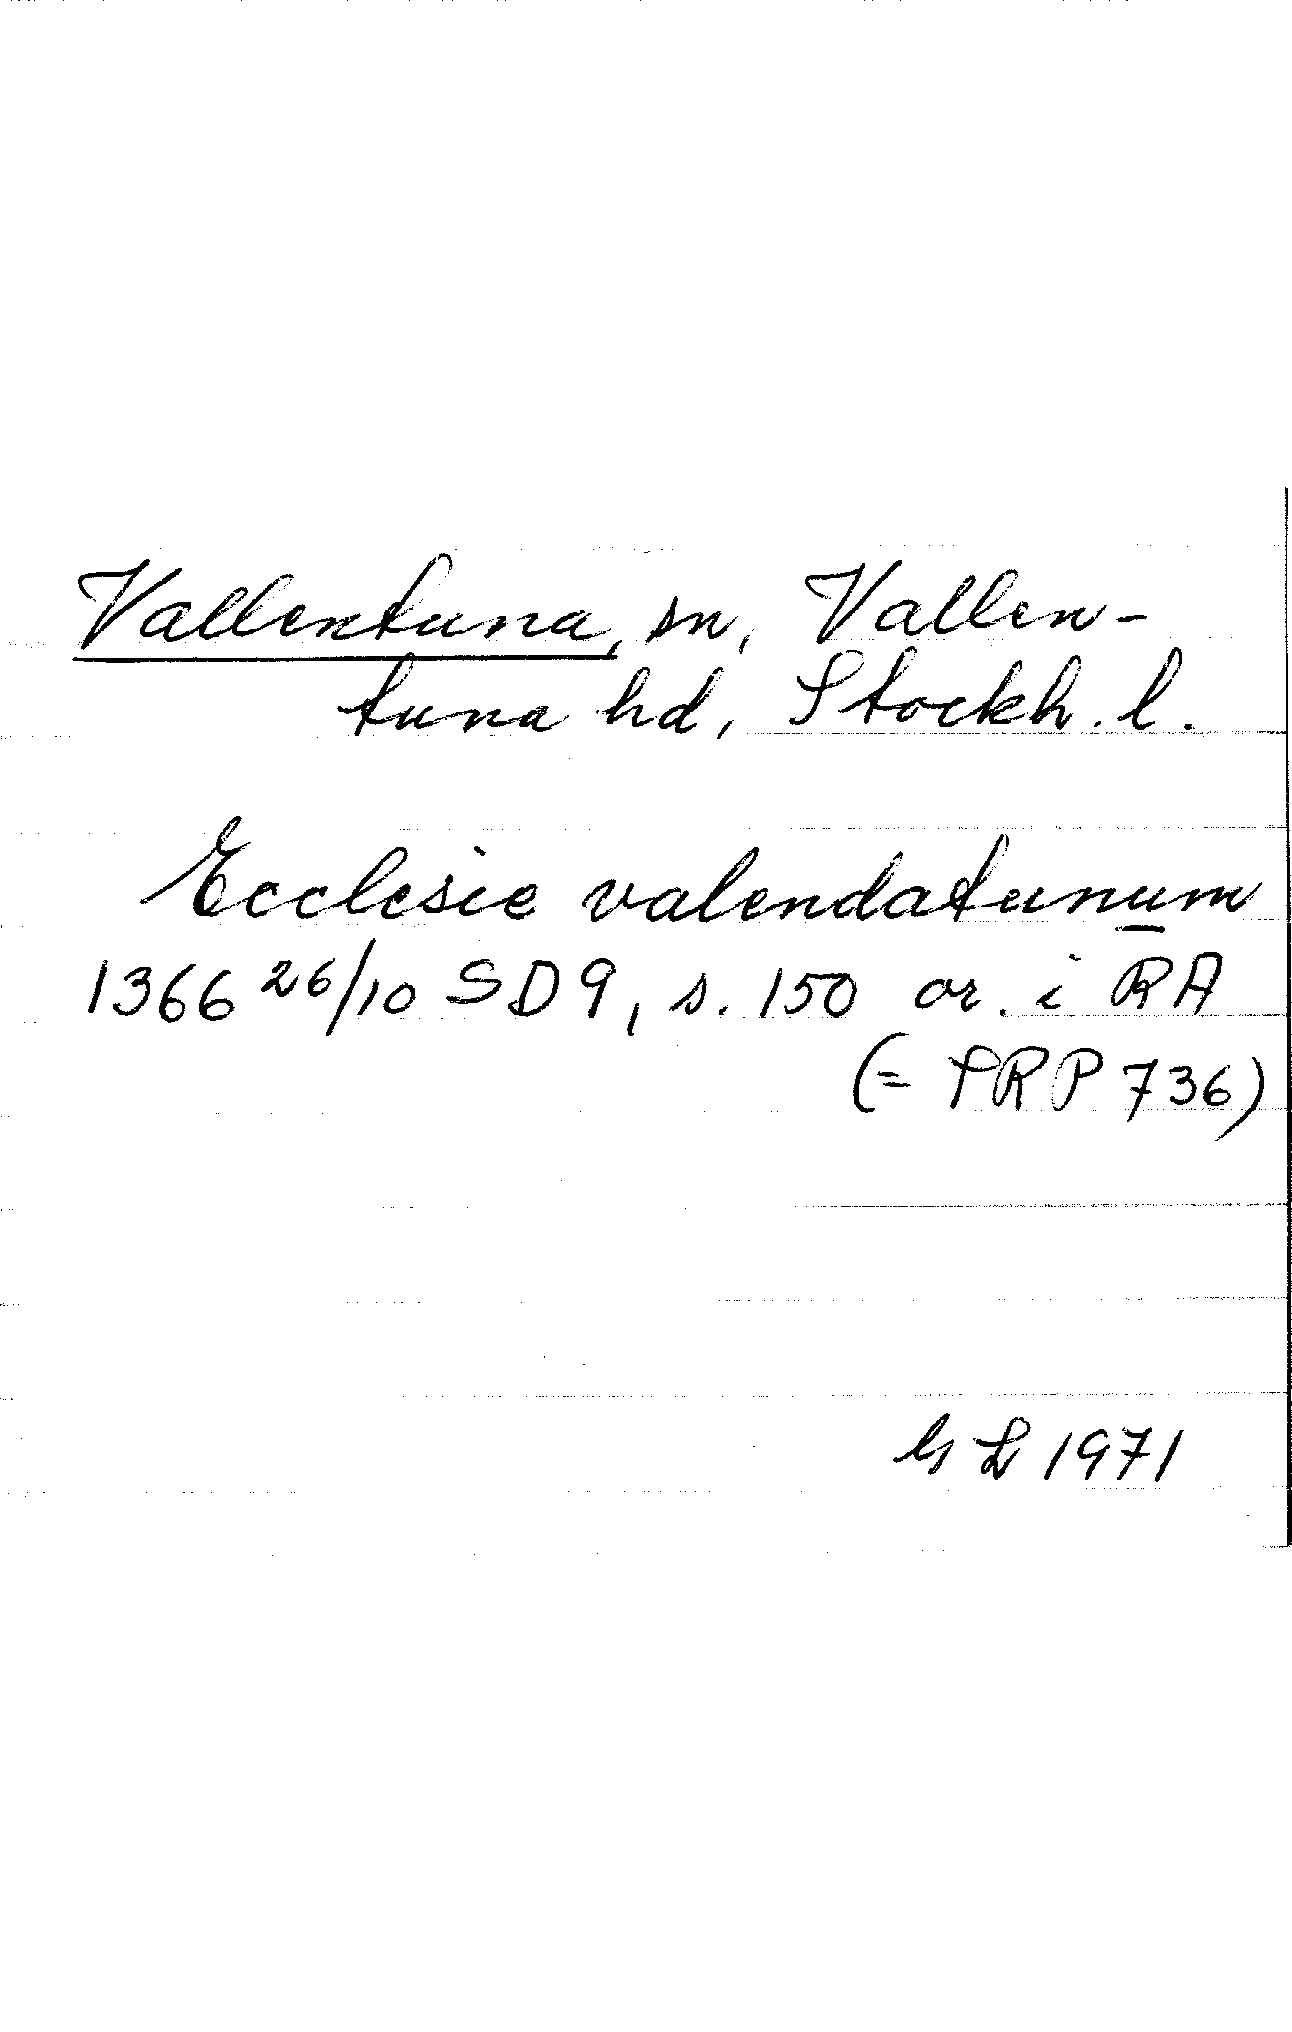 Vallentuna, sn, Vallen-
tuna hd, Stockh. l.
Ecclesie valendatunum
1366 26/10 SD 9, s. 150 or. i RA
(= SRP 736)
GL 1971